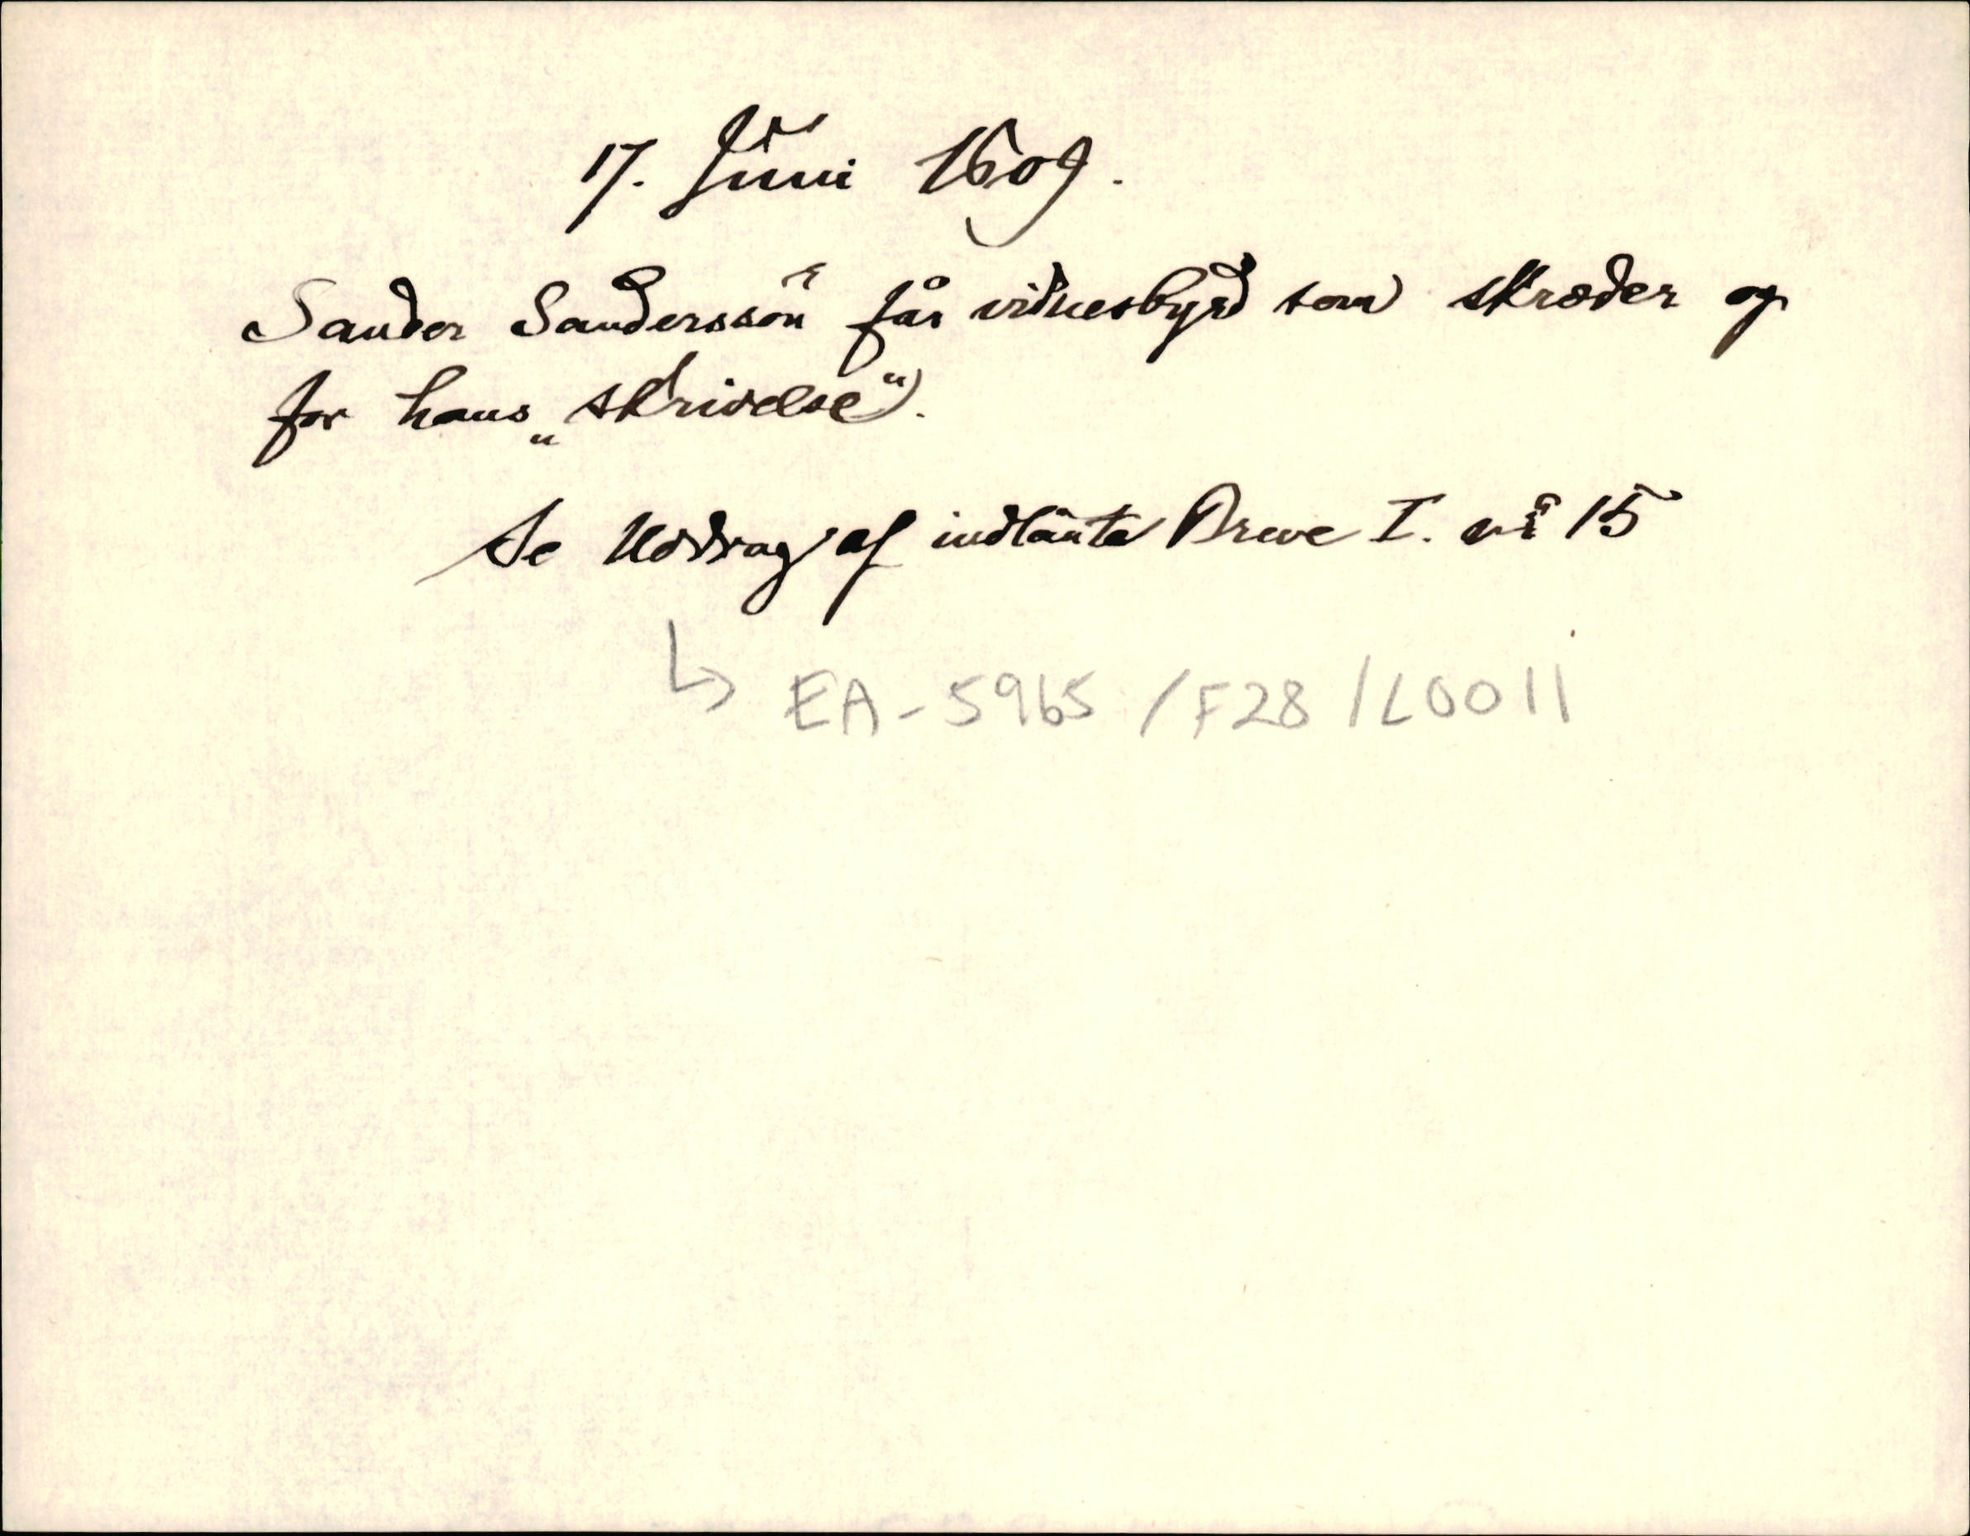 17. Juni 1609.
Sander Sanderssön får vidnesbyrd som skræder og
for hans „skrivelse“.
Se Uddrag af indlånte Breve I. nr 15
↳ EA-5965 /F28 /L0011